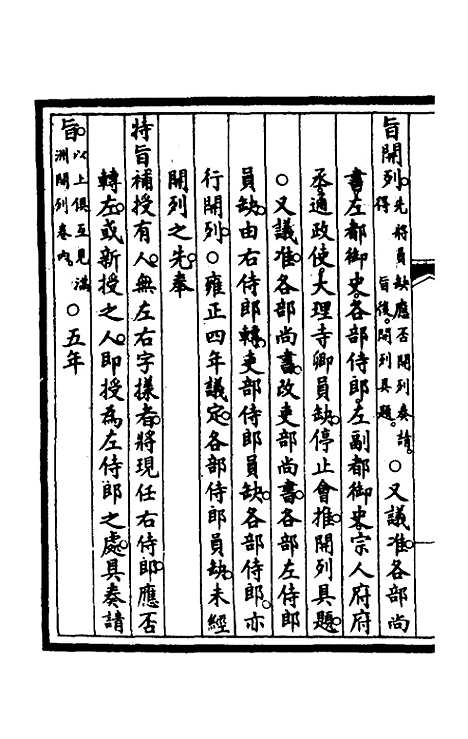 旨開列。先將員缺應否開列奏請。得旨後。開列具題。○又議准。各部尚
書。左都御史。各部侍郎。左副都御史。宗人府府
丞。通政使。大理寺卿員缺。停止會推。開列具題。
○又議准。各部尚書。改吏部尚書。各部左侍郎
員缺。由右侍郎轉。吏部侍郎員缺。各部侍郎。亦
行開列。○雍正四年議定。各部侍郎員缺。未經
開列之先。奉
特旨補授有人。無左右字樣者。將現任右侍郎。應否
轉左。或新授之人。即授為左侍郎之處。具奏請
旨。以上俱互見滿洲開列卷內。○五年